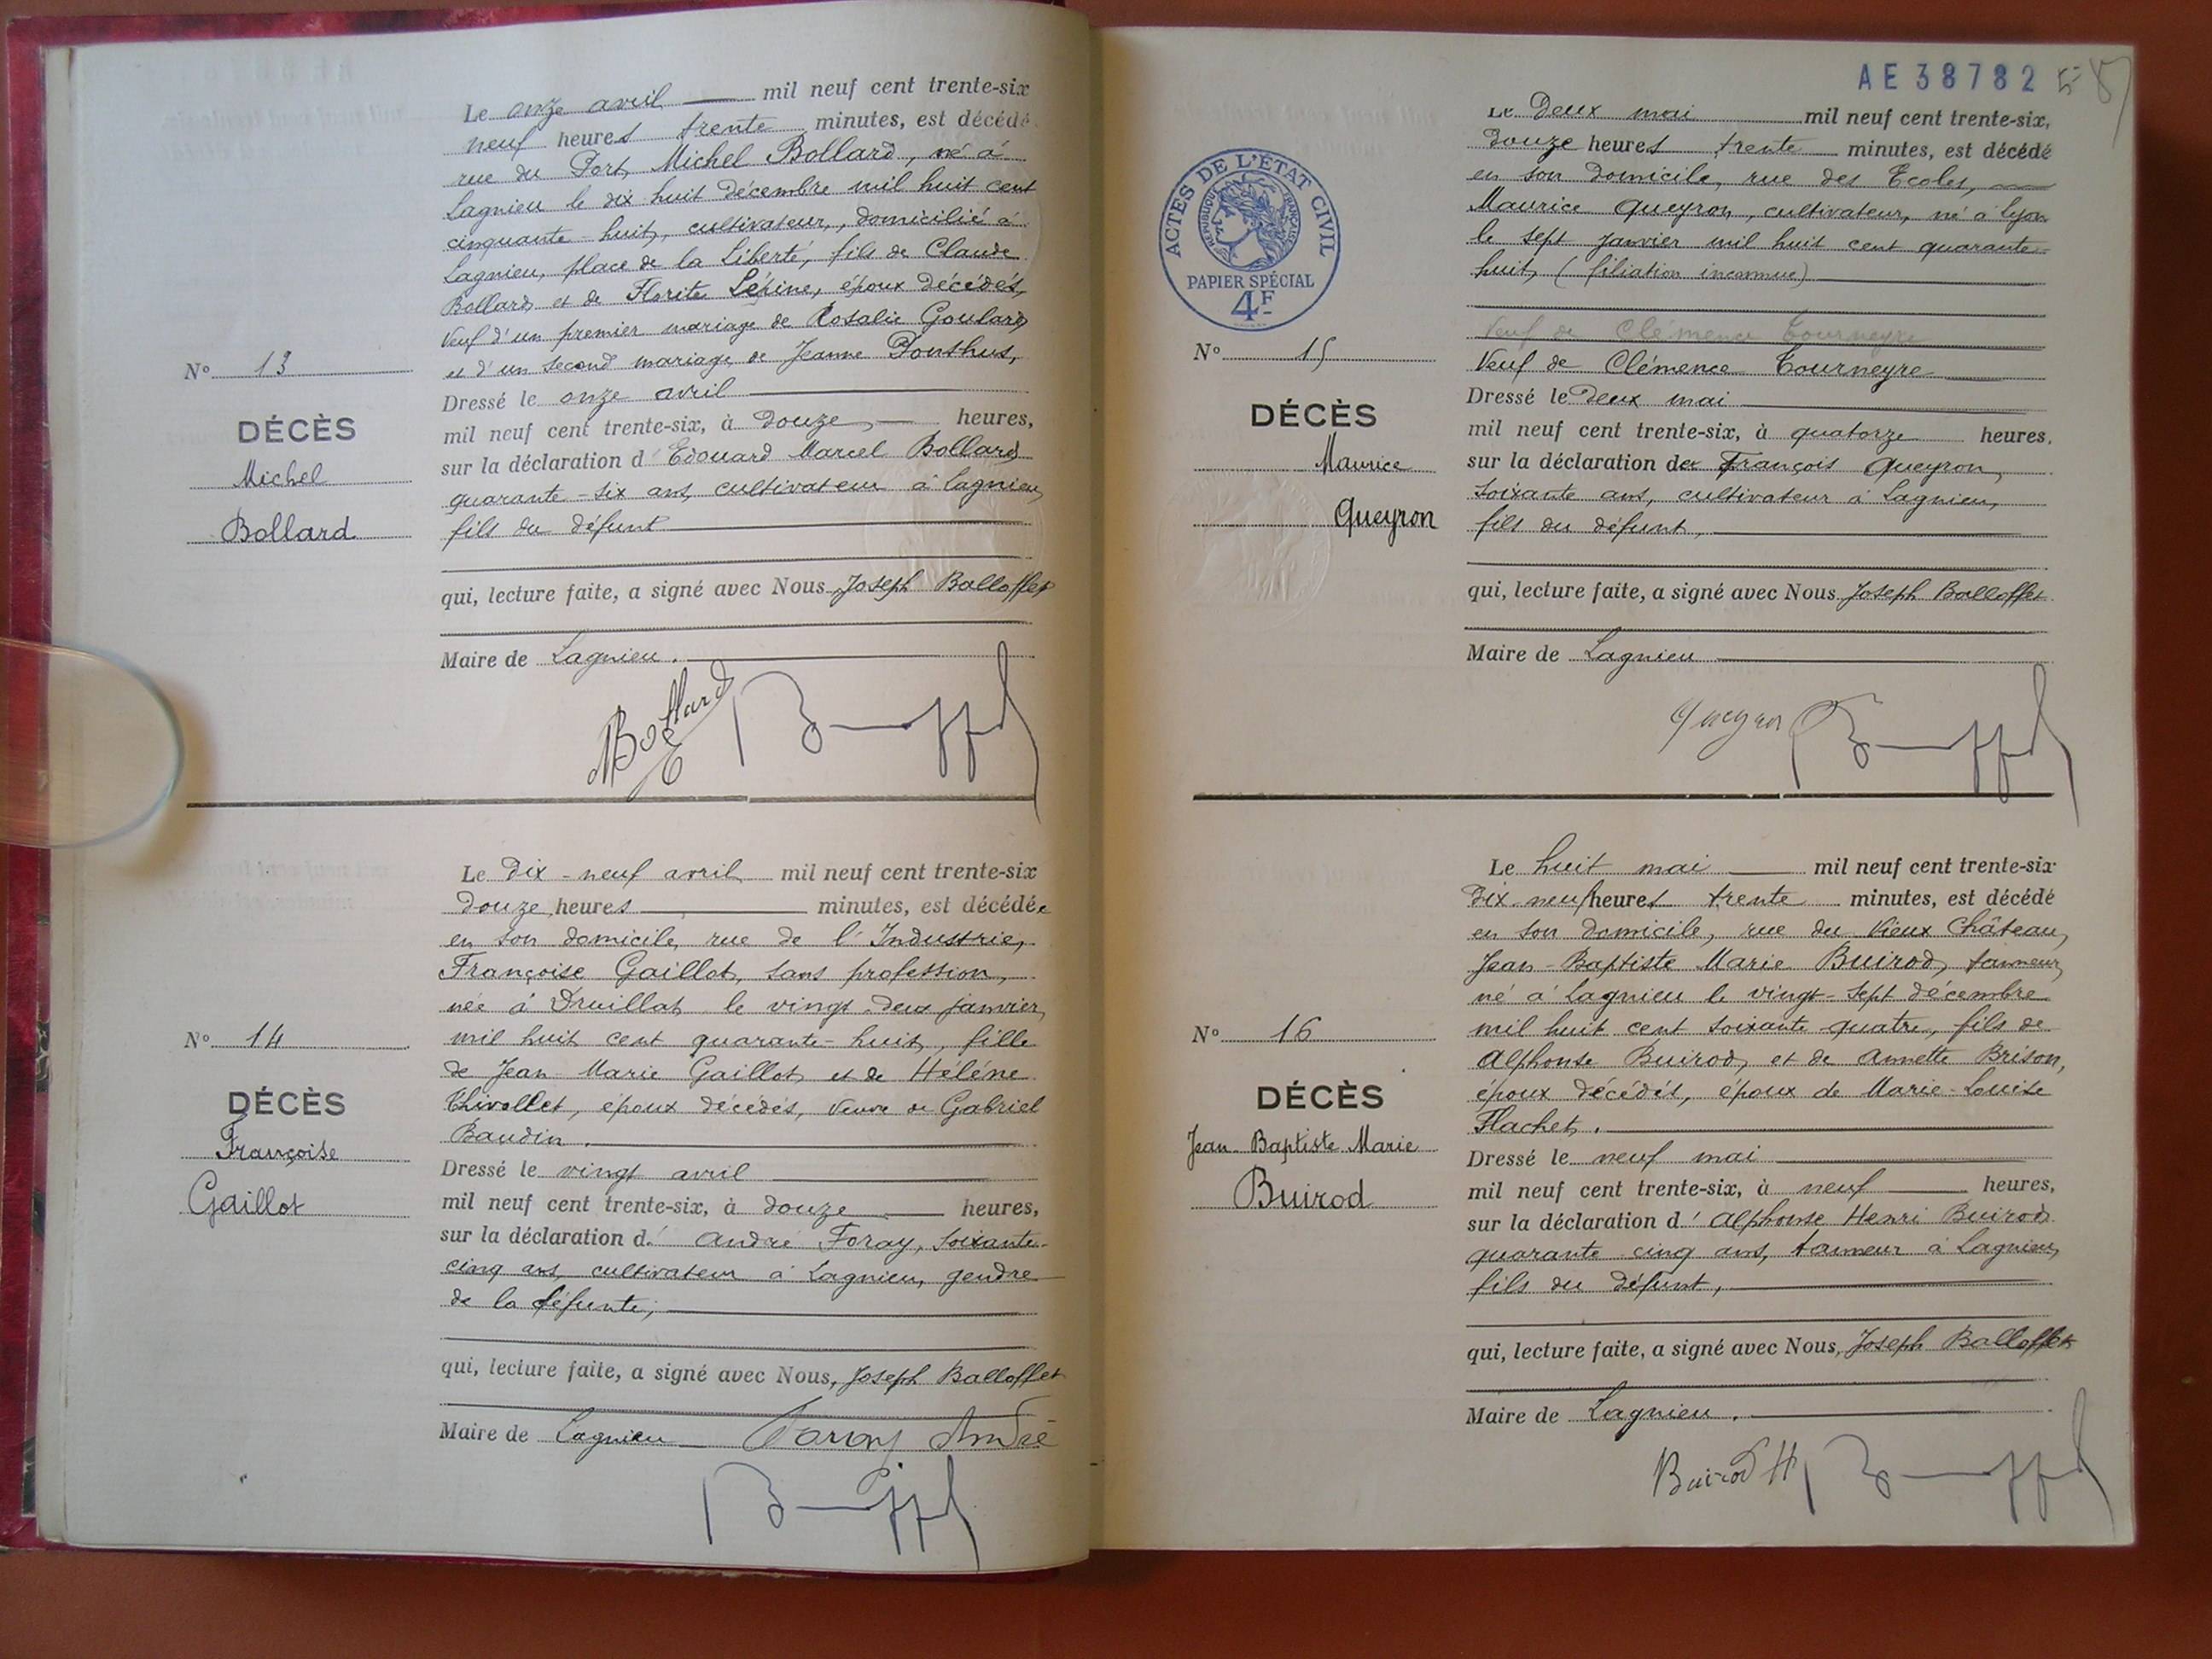 Le onze avril mil neuf cent trente-six
neuf heures trente minutes, est décédé
rue du Port, Michel Bollard, né à
Lagnieu le dix huit décembre mil huit cent
cinquante-huit, cultivateur, domicilié à
Lagnieu, place de la Liberté, fils de Claude
Bollard et de Florite Lépine, époux décédés,
Veuf d'un premier mariage de Rosalie Goulard
et d'un second mariage de Jeanne Ponthus,
Dressé le onze avril
mil neuf cent trente-six, à douze heures,
sur la déclaration d'Edouard Marcel Bollard
quarante-six ans, cultivateur à Lagnieu,
fils du défunt
qui, lecture faite, a signé avec Nous Joseph Balloffet
Maire de Lagnieu.
N° 13
DÉCÈS
Michel
Bollard
Bollard E
Le dix-neuf avril mil neuf cent trente-six
douze heures minutes, est décédée
en son domicile, rue de l'Industrie,
Françoise Gaillot, sans profession,
née à Druillat le vingt-deux janvier
mil huit cent quarante-huit, fille
de Jean-Marie Gaillot et de Hélène
Thivollet, époux décédés, Veuve de Gabriel
Baudin.
Dressé le vingt avril
mil neuf cent trente-six, à douze heures,
sur la déclaration d'André Foray, soixante-
cinq ans, cultivateur à Lagnieu, gendre
de la défunte,
qui, lecture faite, a signé avec Nous, Joseph Balloffet
Maire de Lagnieu
Foray André
N° 14
DÉCÈS
Françoise
Gaillot
AE38782
ACTES DE L'ÉTAT CIVIL
RÉPUBLIQUE FRANÇAISE
PAPIER SPÉCIAL
4F
Le Deux mai mil neuf cent trente-six,
douze heures trente minutes, est décédé
en son domicile, rue des Ecoles,
Maurice Queyron, cultivateur, né à Lyon
le sept janvier mil huit cent quarante-
huit, (filiation inconnue)
Veuf de Clémence Tourneyre
Veuf de Clémence Tourneyre
Dressé le Deux mai
mil neuf cent trente-six, à quatorze heures.
sur la déclaration de François Queyron,
soixante ans, cultivateur à Lagnieu,
fils du défunt,
qui, lecture faite, a signé avec Nous Joseph Balloffet
Maire de Lagnieu
N° 15
DÉCÈS
Maurice
Queyron
Queyron
Le huit mai mil neuf cent trente-six
dix-neuf heures trente minutes, est décédé
en son domicile, rue du Vieux Château,
Jean-Baptiste Marie Buirod, tanneur,
né à Lagnieu le vingt-sept décembre
mil huit cent soixante quatre, fils de
Alphonse Buirod, et de Annette Brison,
époux décédés, époux de Marie-Louise
Flachet.
Dressé le neuf mai
mil neuf cent trente-six, à neuf heures,
sur la déclaration d'Alphonse Henri Buirod
quarante cinq ans, tanneur à Lagnieu,
fils du défunt,
qui, lecture faite, a signé avec Nous, Joseph Balloffet
Maire de Lagnieu.
N° 16
DÉCÈS
Jean-Baptiste Marie
Buirod
Buirod H